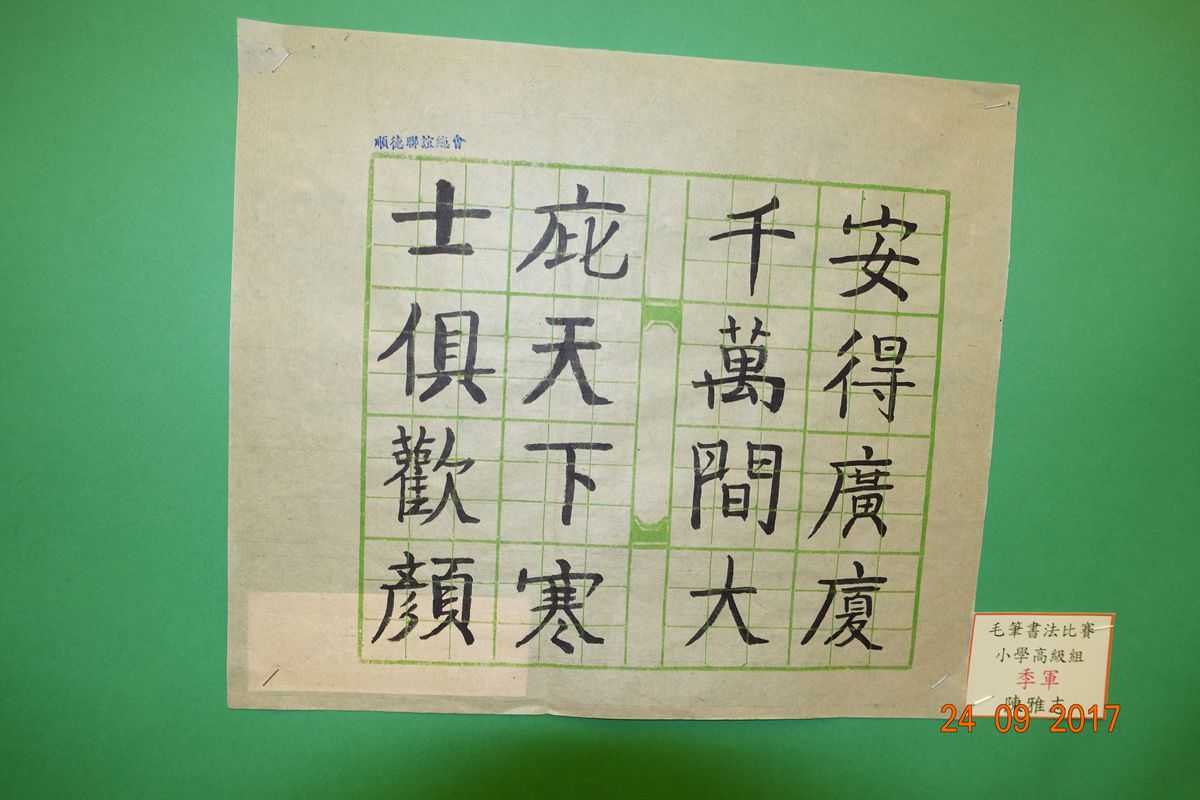 順德聯誼總會
安得廣廈
千萬間大
庇天下寒
士俱歡顏
毛筆書法比賽
小學高級組
季軍
陳雅
24 09 2017